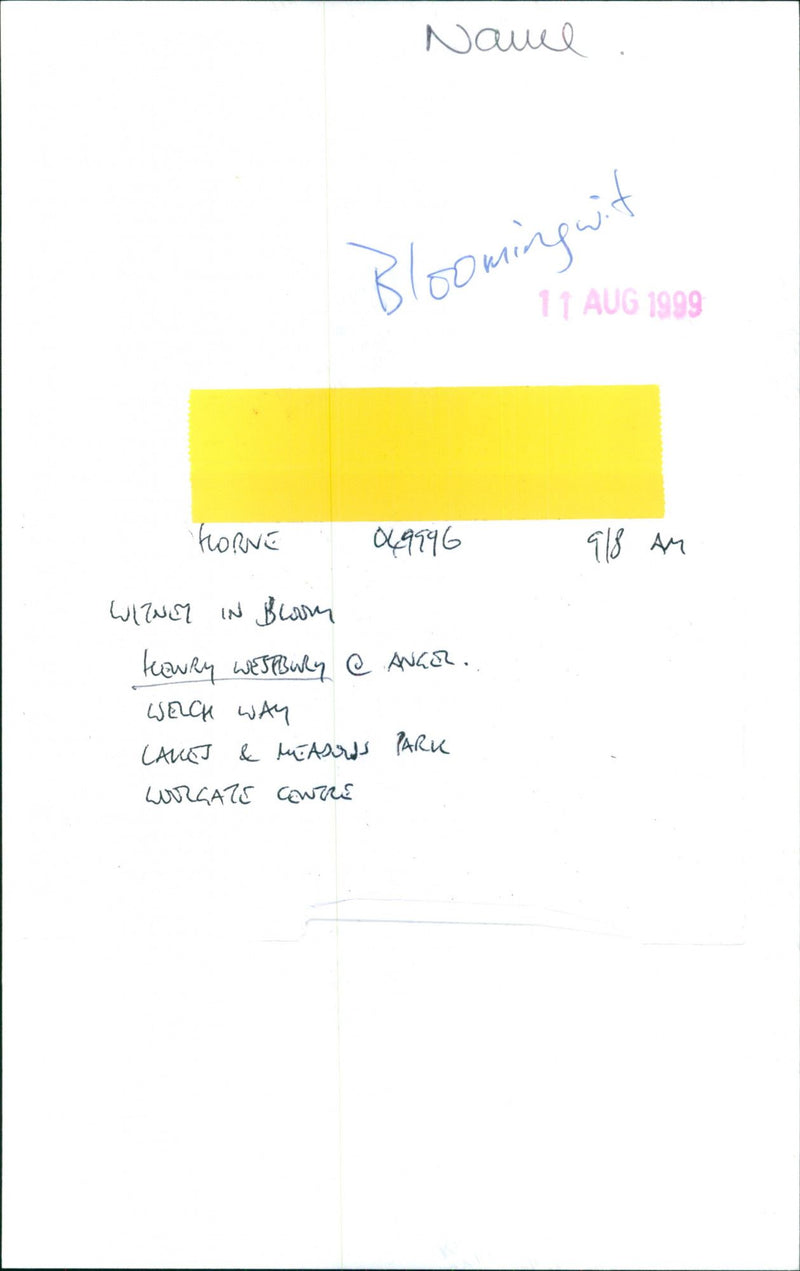 Name.
Bloomingwit
11 AUG 1999
HORNE 049996 9/8 AM
WITNEY IN BLOOM
HENRY WESTBURY @ ANGEL.
WELCH WAY
LAKES & MEADOWS PARK
WOOLGATE CENTRE